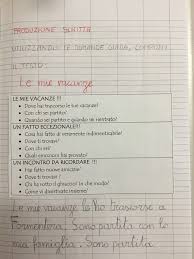 PRODUZIONE SCRITTA
UTILIZZANDO LE DOMANDE GUIDA, COMPONI
IL TESTO:
Le mie vacanze
LE MIE VACANZE !!!
• Dove hai trascorso le tue vacanze?
• Con chi se partito?
• Quando se partito e quando se rientrato?
UN FATTO ECCEZIONALE!!
• Cosa hai fatto di veramente indimenticabile?
• Dove ti trovavi?
• Con chi eri?
• Quali emozioni hai provato?
UN INCONTRO DA RICORDARE !!!
• Hai fatto nuove amicizie?
• Dove ti trovavi?
• Chi ha rotto il ghiaccio? In che modo?
Le mie vacanze le ho trascorse a
Formentera. Sono partita con la
mia famiglia. Sono partita